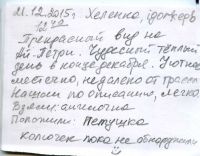 21.12.2015г Хеленка,
12 40
Прекрасный вид на
Ай-Петри. Чудесный тёплый
день в конце декабря. Уютное
местечко, недалеко от трассы
Нашли по описанию, легко.
Взяли: ангелочка
Положили: Петушка
колючек пока не обнаружили